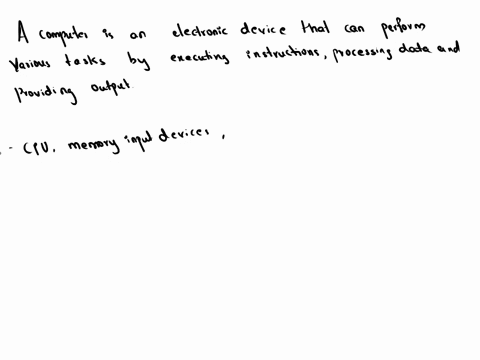 A computer is an electronic device that can perform
various tasks by executing instructions, processing data and
providing output.
. - CPU, memory input devices ,